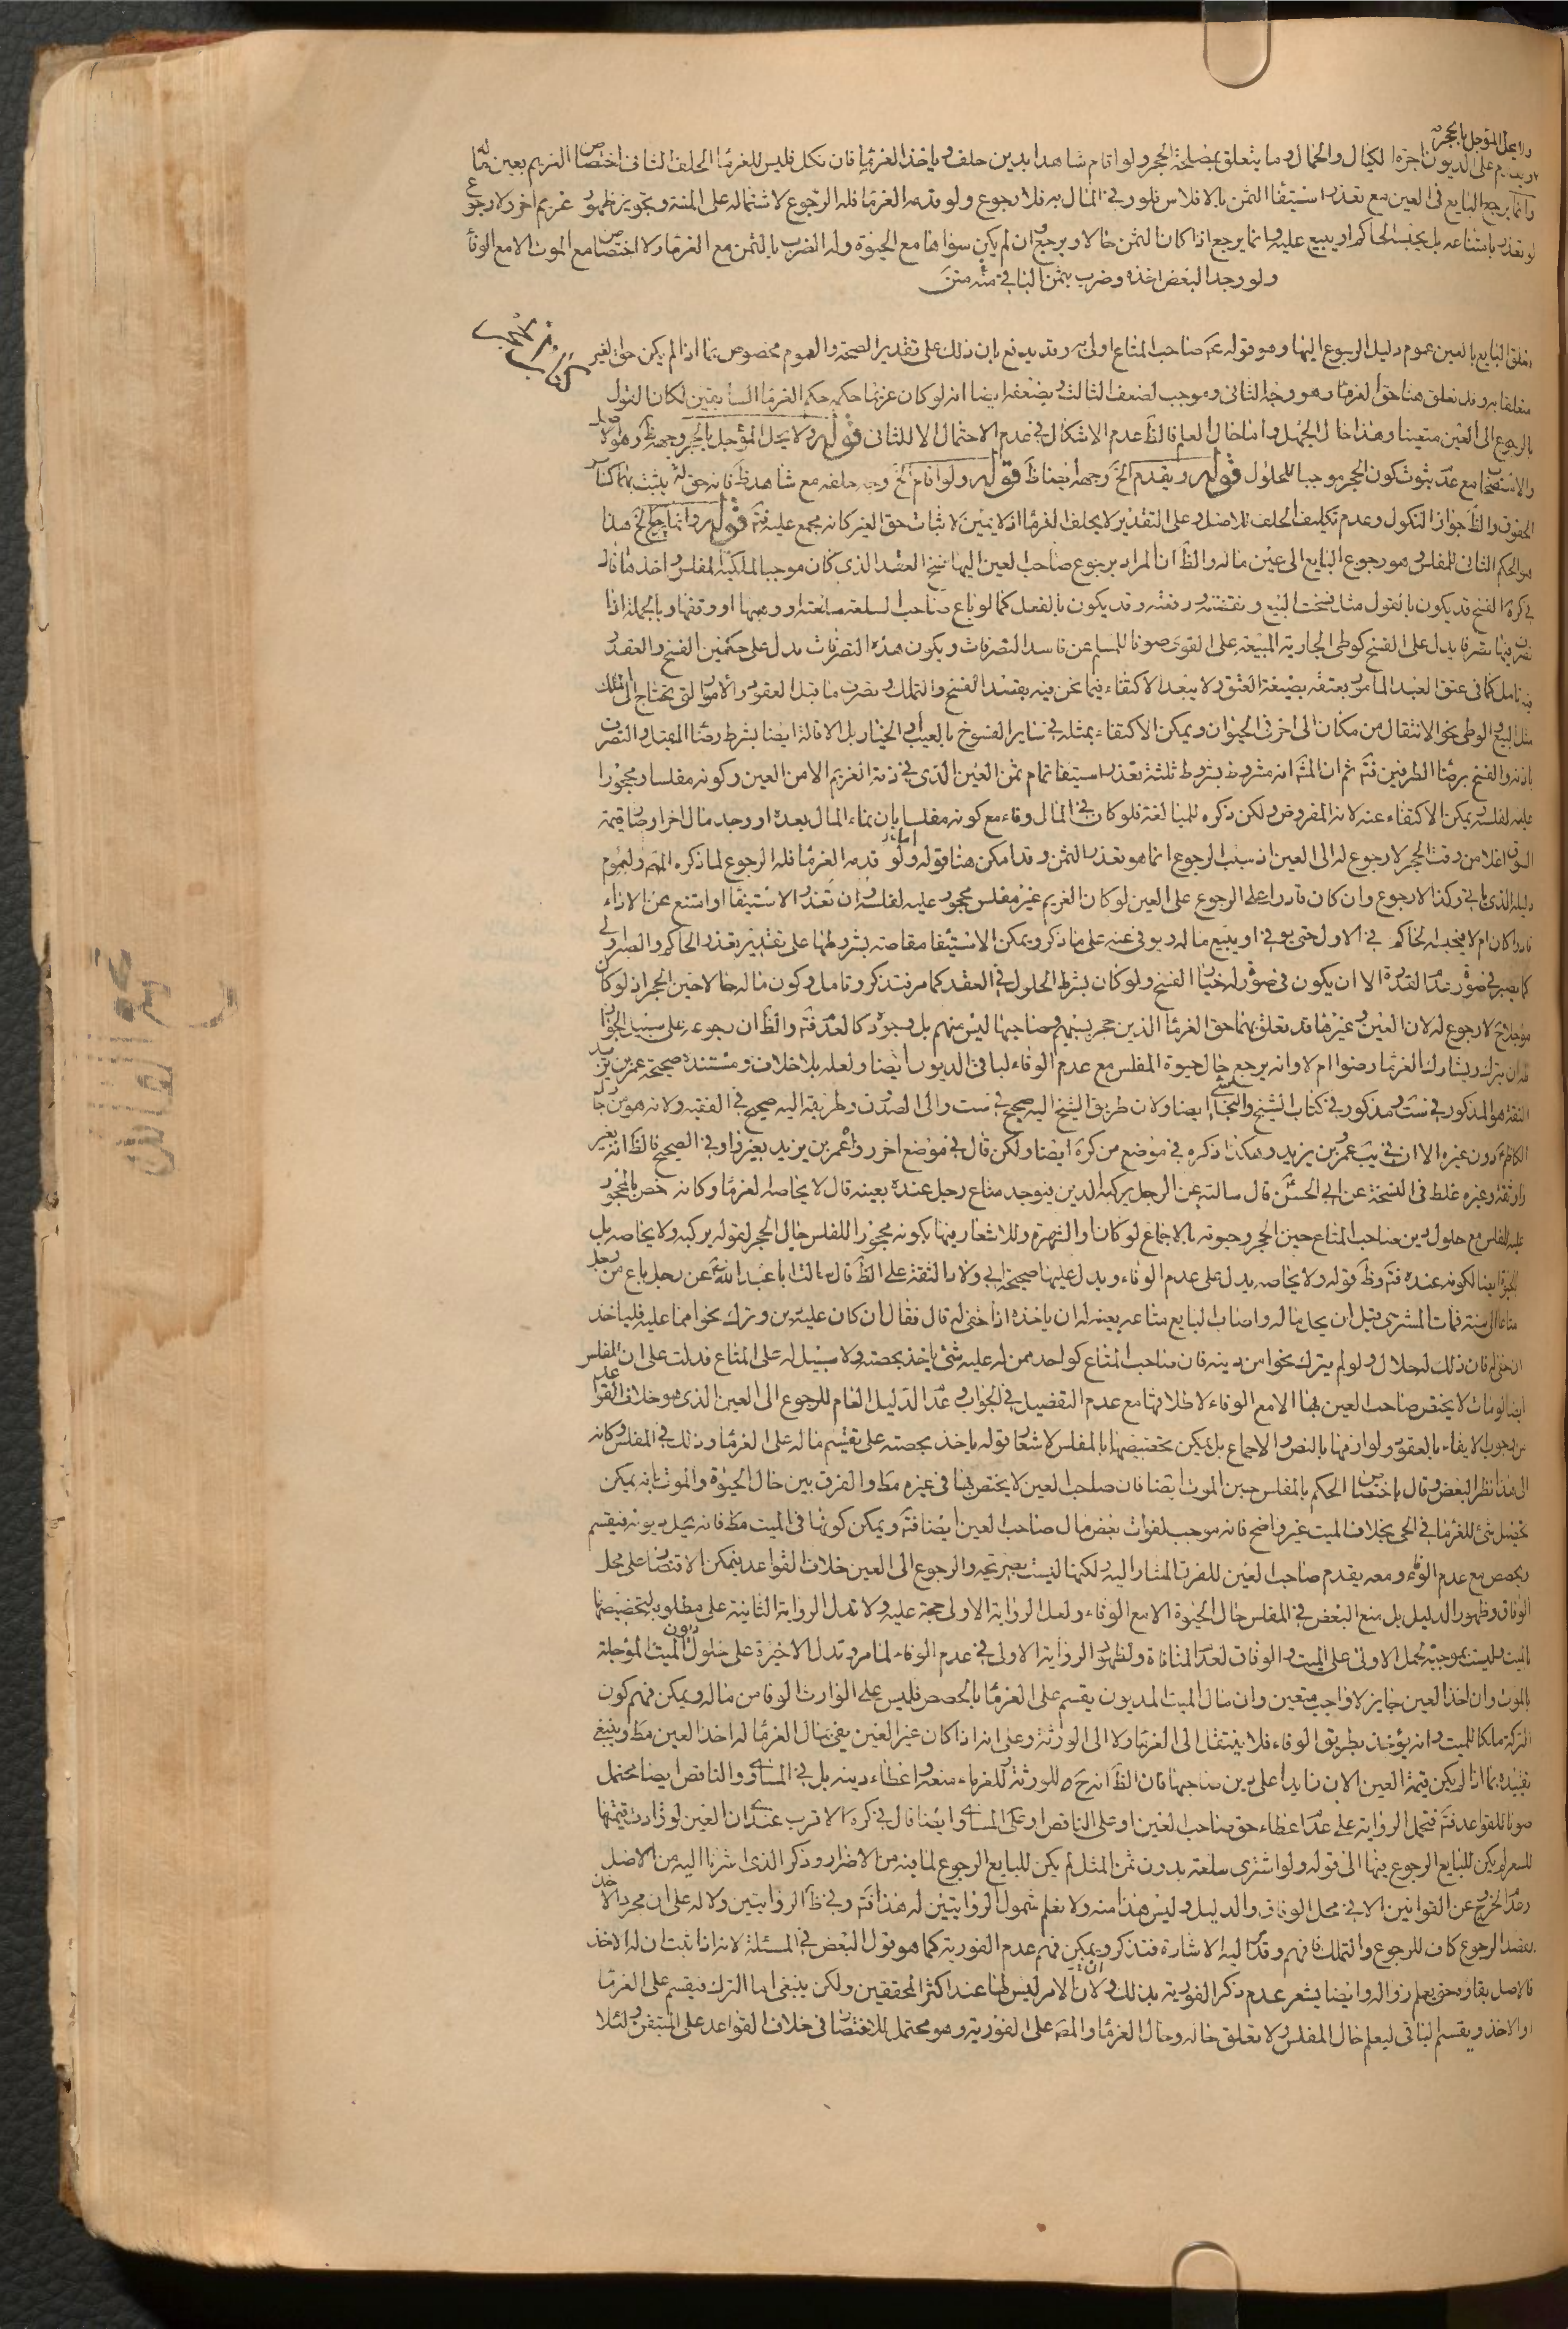 ولا يحل المؤجل بالحجر
ويقدم على الديون اجرة الكيال والحمال وما يتعلق بمصلحة الحجر ولو اقام شاهدا بدين حلف وياخذ الغرماء فان نكل فليس للغرماء الحلف الثانى اختصاص الغريم بعين ماله
وانما يرجع البايع فى العين مع تعذر استيفاء الثمن بالافلاس فلو وفى المال به فلا رجوع ولو قدمه الغرماء فله الرجوع لاشتماله على المنة وتجويز ظهور غريم اخر ولا رجوع
لو تعذر بامتناعه بل يحبسه الحاكم او يبيع عليه وانما يرجع اذا كان الثمن حالا ويرجع وان لم يكن سواها مع الحيوة وله الضرب بالثمن مع الغرماء ولا اختصاص مع الموت الا مع الوفاء
ولو وجد البعض اخذه وضرب بثمن الباقى منه متن
تعلق البايع بالعين عموم دليل الرجوع اليها وهو قوله صاحب المتاع اولى به وقد يدفع بان ذلك على تقدير الصحة والعموم مخصوص بما اذا لم يكن حق لغير
متعلقا به وقد تعلق هنا حق الغرماء وهو وجه الثانى وموجب لضعف الثالث ويضعفه ايضا انه لو كان غريما حكمه حكم الغرماء السابقين لكان القول
بالرجوع الى العين متعينا وهذا حال الجهل واما حال العلم فالظ عدم الاشكال فى عدم الاحتمال الا للثانى قوله ولا يحل المؤجل بالحجر وجهه ظ وهو الاصل
والاستصحاب مع عدم ثبوت كون الحجر موجبا للحلول قوله ويقدم الخ وجهه ايضا ظ قوله ولو اقام الخ وجه حلفه مع شاهد ظ فانه حق له يثبت بهما كسائر
الحقوق والظ جواز النكول وعدم تكليف الحلف للاصل وعلى التقدير لا يحلف الغرماء اذ لا يمين لاثبات حق الغير كانه مجمع عليه فت قوله وانما يرجع الخ هذا
هو الحكم الثانى للمفلس وهو رجوع البايع الى عين ماله والظ ان المراد برجوع صاحب العين اليها فسخ العقد الذى كان موجبا لملكية المفلس واخذ ماله قال
فى كره الفسخ قد يكون بالقول مثل فسخت البيع ونقضته ورفعته وقد يكون بالفعل كما لو باع صاحب السلعة سلعته او وهبها او وقفها وبالجملة اذا
تصرف فيها تصرفا يدل على الفسخ كوطى الجارية المبيعة على القوى صونا للمسلم عن فاسد التصرفات ويكون هذه التصرفات تدل على حكمين الفسخ والعقد
فيه تامل كما فى عتق العبد المامور بعتقه بصيغة العتق ولا يبعد الاكتفاء فيما نحن فيه بقصد الفسخ والتملك وتصرف ما قبل العقود والامور التى تحتاج الى الملك
مثل البيع والوطى نحو الانتقال من مكان الى اخر فى الحيوان ويمكن الاكتفاء بمثله فى ساير الفسوخ بالعيب والخيار بل الاقالة ايضا بشرط رضاء المقيل والتصرف
باذنه والفسخ برضاء الطرفين فت ثم ان الم انه مشروط بشروط ثلثة تعذر استيفاء تمام ثمن العين الذى فى ذمة الغريم الا من العين وكونه مفلسا ومحجورا
عليه لفلسه يمكن الاكتفاء عنه لانه المفروض ولكن ذكره للمبالغة فلو كان فى المال وفاء مع كونه مفلسا بان نماء المال بعده او وجد مال اخر او صار قيمة
السوق اغلا من وقت الحجر لا رجوع له الى العين اذ سبب الرجوع انما هو تعذر الثمن وقد امكن هنا قوله ولو قدمه الغرماء فله الرجوع لما ذكره المص ولعموم
دليله الذى ياتى وكذا لا رجوع وان كان قادرا على الرجوع على العين لو كان الغريم غير مفلس محجور عليه لفلسه وان تعذر الاستيفاء او امتنع عن الاداء
قادرا كان ام لا فيحبسه الحاكم فى الاول حتى يوفى او يبيع ماله ويوفى عنه على ما ذكر ويمكن الاستيفاء مقاصته بشروطها على تقدير تعذر الحاكم والصبر
كما يصبر فى صورة عدم القدرة الا ان يكون فى صورة له خيار الفسخ ولو كان بشرط الحلول فى العقد كما مر فتذكر وتامل وكون ماله حالا حين الحجر اذ لو كان
مؤجلا ح لا رجوع له لان العين وغيرها قد تعلق بهما حق الغرماء الذين حجر بسببهم وصاحبها ليس منهم بل وجوده كالعدم فت والظ ان رجوعه على سبيل الجواز
فله ان يترك ويشارك الغرماء رضوا ام لا وانه يرجع حال حيوة المفلس مع عدم الوفاء لباقى الديون ايضا ولعله بلا خلاف ومستنده صحيحة عمر بن يزيد
الثقة هو المذكور فى ست ومذكور فى كتاب الشيخ والنجاشى ايضا ولان طريق الشيخ اليه صحيح فى ست والى الصدوق وطريقه اليه صحيح فى الفقيه ولانه هو من رجال
الكاظم دون غيره الا ان فى يب عمرو بن يزيد وهكذا ذكره فى موضع من كره ايضا ولكن قال فى موضع اخر وعمر بن يزيد بغير واو فى الصحيح فالظ انه بغير
واو ثقة وغيره غلط فى النسخة عن ابى الحسن قال سالته عن الرجل يركبه الدين فيوجد متاع رجل عنده بعينه قال لا يحاصه الغرماء وكانه خص بالمحجور
عليه للفلس مع حلول دين صاحب المتاع حين الحجر وحيوته بالاجماع لو كان والشهرة وللاشعار فيها بكونه محجورا للفلس حال الحجر لقوله يركبه ولا يحاصه بل
الحيوة ايضا لكونه عنده فت وظ قوله ولا يحاصه يدل على عدم الوفاء ويدل عليها صحيحة ابى ولاد الثقة على الظ قال سالت ابا عبد الله عن رجل باع من رجل
متاعا الى سنة فمات المشترى قبل ان يحل ماله واصاب البايع متاعه بعينه له ان ياخذه اذا خفى له قال فقال ان كان عليه دين وترك نحوا مما عليه فلياخذ
ان خفى له فان ذلك له حلال ولو لم يترك نحوا من دينه فان صاحب المتاع كواحد ممن له عليه شئ ياخذ بحصته ولا سبيل له على المتاع فدلت على ان المفلس
ايضا لو مات لا يختص صاحب العين بها الا مع الوفاء لاطلاقها مع عدم التفصيل فى الجواب وعدم الدليل العام للرجوع الى العين الذى هو خلاف القواعد
من وجوب الايفاء بالعقود ولوازمها بالنص والاجماع بل يمكن تخصيصها بالمفلس لاشعار قوله ياخذ بحصته على تقسيم ماله على الغرماء وذلك فى المفلس وكانه
الى هذا نظر البعض وقال باختصاص الحكم بالمفلس حين الموت ايضا فان صاحب العين لا يختص بها فى غيره مط والفرق بين حال الحيوة والموت بانه يمكن
تحصيل شئ للغرماء فى الحى بخلاف الميت غير واضح فانه موجب لفوات بعض مال صاحب العين ايضا فت ويمكن كونها فى الميت مط فانه يحل ديونه فيقسم
بالحصص مع عدم الوفاء ومعه يقدم صاحب العين للفرق المشار اليه ولكنها ليست بصريحة والرجوع الى العين خلاف القواعد فيمكن الاقتصار على محل
الوفاق وظهور الدليل بل منع البعض فى المفلس حال الحيوة الا مع الوفاء ولعل الرواية الاولى حجة عليه ولا تدل الرواية الثانية على مطلوبه لتخصيصها
بالميت وليست بموجبة لحمل الاولى على الميت والوفاق لعدم المنافاة ولظهور الرواية الاولى فى عدم الوفاء لما مر وتدل الاخيرة على حلول ديون الميت المؤجلة
بالموت وان اخذ العين جايز لا واجب متعين وان مال الميت المديون يقسم على الغرماء بالحصص فليس على الوارث الوفاء من ماله ويمكن فهم كون
التركة ملكا للميت وانه يؤخذ بطريق الوفاء فلا ينتقل الى الغرماء ولا الى الورثة وعلى انه اذا كان غير العين يفى بمال الغرماء له اخذ العين مط وينبغى
تقييده بما اذا لم يكن قيمة العين الان زايدا على دين صاحبها فان الظ انه ح للورثة وللغرماء منعه واعطاء دينه بل فى المساوى والناقص ايضا محتمل
صونا للقواعد فت فتحمل الرواية على عدم اعطاء حق صاحب العين او على الناقص او على المساوى ايضا قال فى كره الاقرب عندى ان العين لو زادت قيمتها
للسعر لم يكن للبايع الرجوع فيها الى قوله ولو اشترى سلعة بدون ثمن المثل لم يكن للبايع الرجوع لما فيه من الاضرار وذكر الذى اشرنا اليه من الاصل
وعدم الخروج عن القوانين الا فى محل الوفاق والدليل وليس هذا منه ولا نعلم شمول الروايتين له هذا فت وفى ظ الروايتين دلالة على ان مجرد الاخذ
بقصد الرجوع كاف للرجوع والتملك فافهم وقد مر اليه الاشارة فتذكر ويمكن فهم عدم الفورية كما هو قول البعض فى المسئلة لانه اذا ثبت ان له الاخذ
فالاصل بقاؤه حتى يعلم زواله وايضا يشعر عدم ذكر الفورية بذلك ولان الامر ليس لها عند اكثر المحققين ولكن ينبغى اما الترك فيقسم على الغرماء
او الاخذ ويقسم الباقى ليعلم حال المفلس ولا تعلق حاله وحال الغرماء والمص على الفورية وهو محتمل للاقتصار فى خلاف القواعد على المتيقن ولئلا